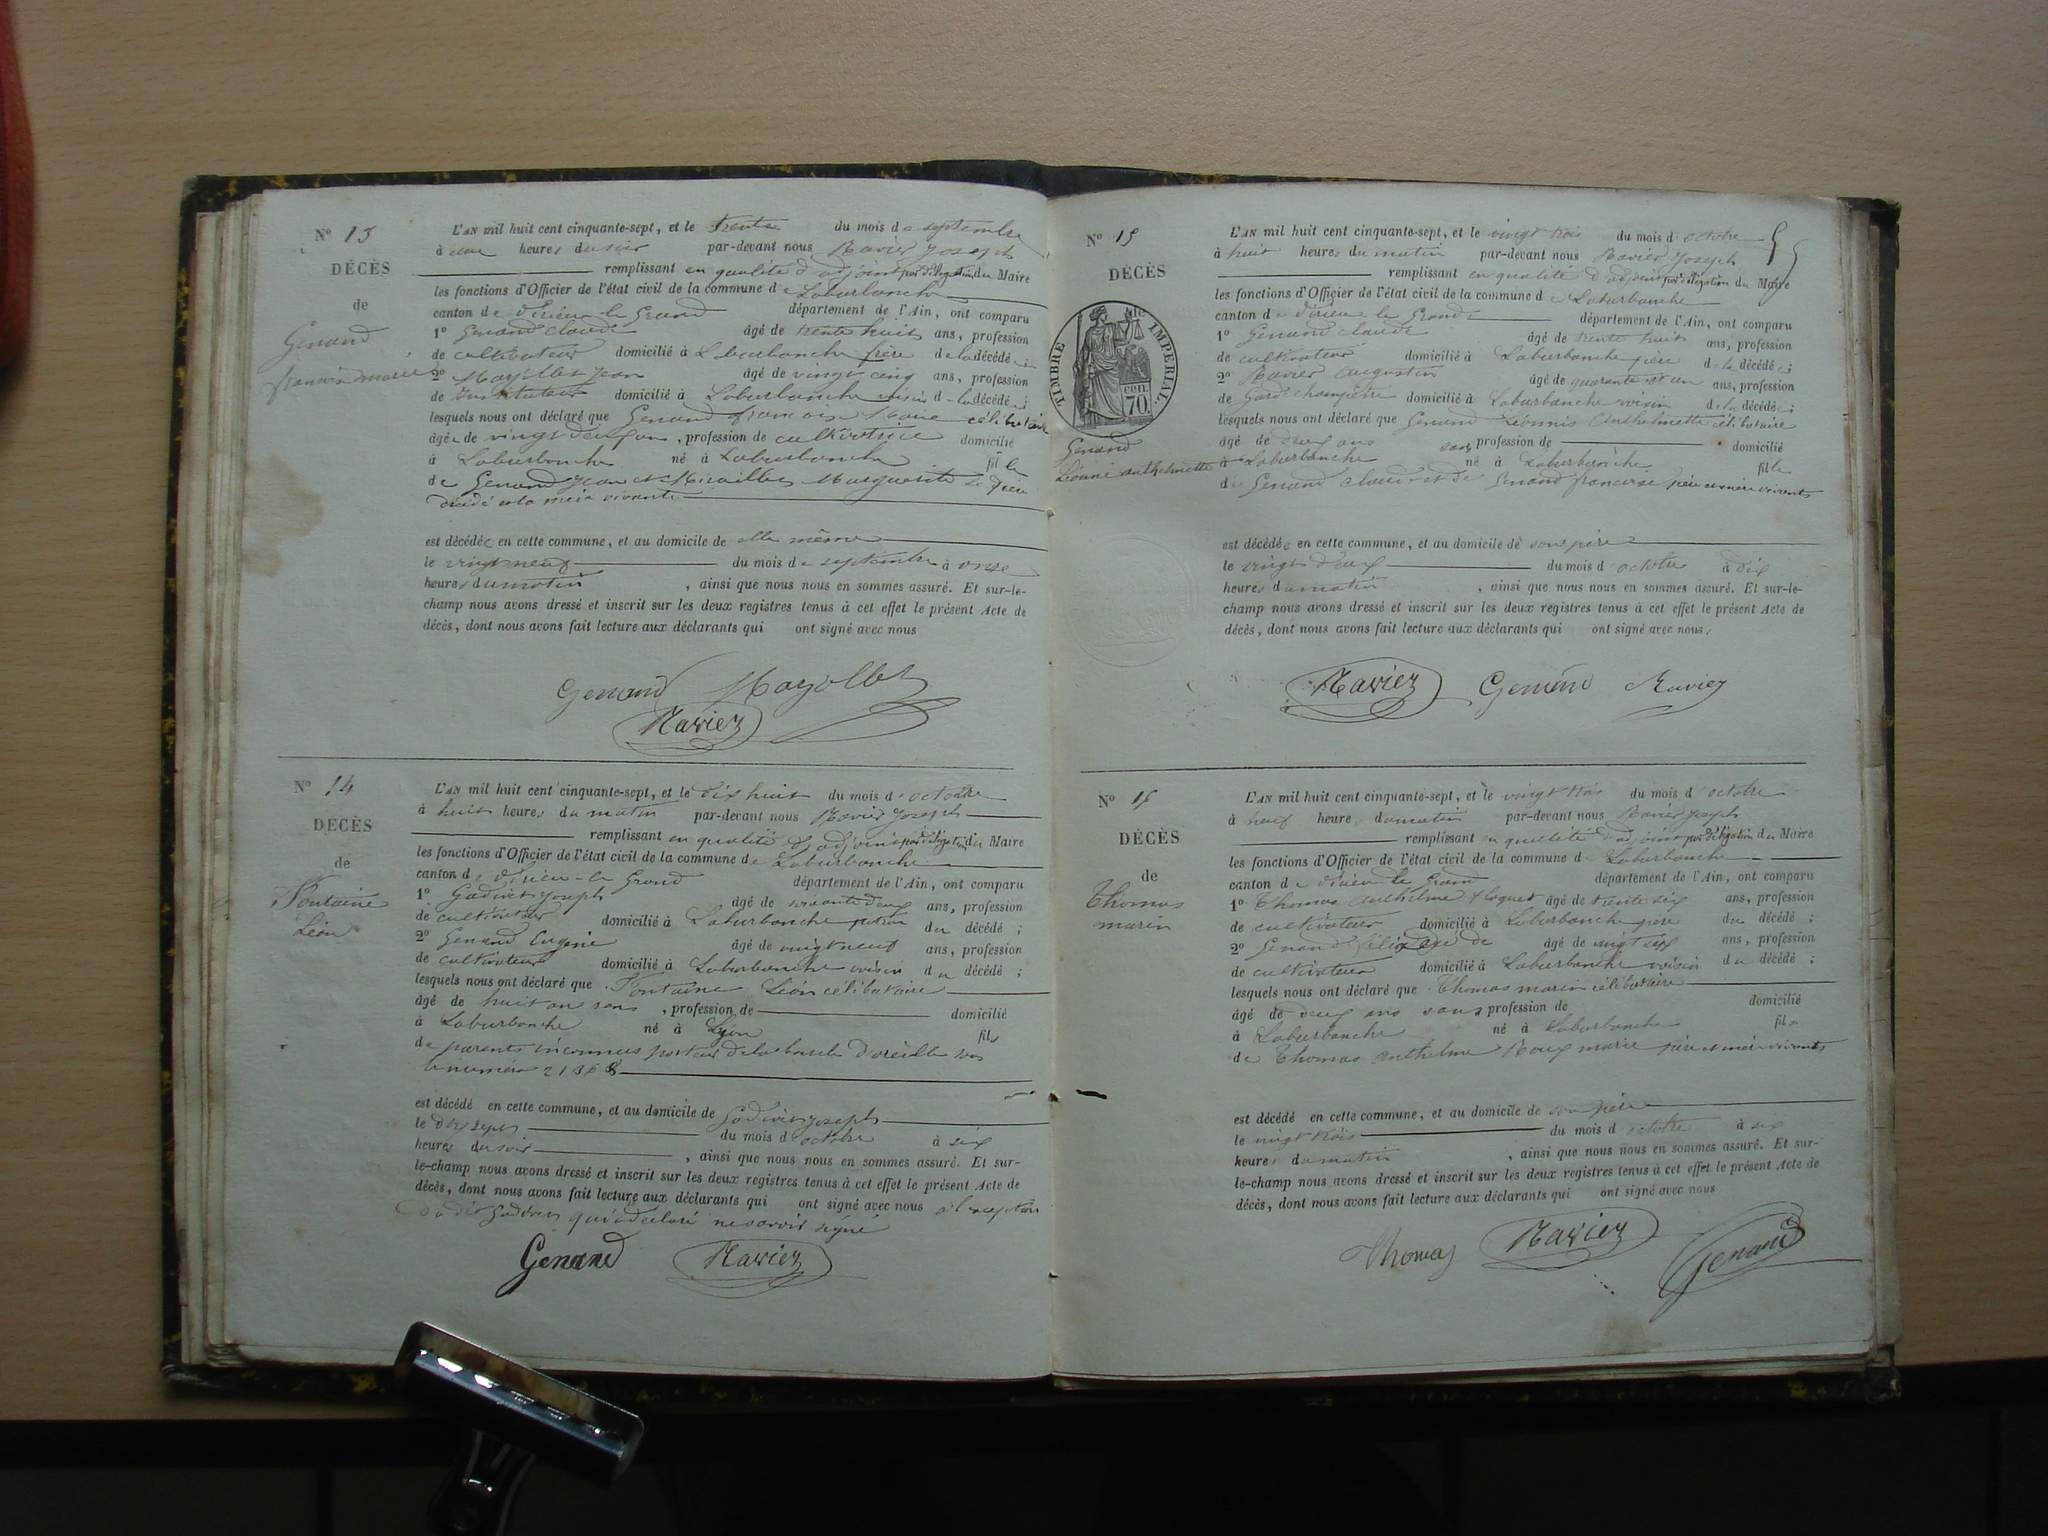 N° 13
DÉCÈS
de
Genand
françoise marie
L'AN mil huit cent cinquante-sept, et le trente du mois de septembre
à une heures du soir par-devant nous Ravier Joseph
remplissant en qualité d'adjoint par délégation du Maire
les fonctions d'Officier de l'état civil de la commune de Laburbanche
canton de Virieu le Grand département de l'Ain, ont comparu
1° Genand claude âgé de trente huit ans, profession
de cultivateur domicilié à Laburbanche frère de la décédée;
2° Mayollet Jean âgé de vingt cinq ans, profession
de instituteur domicilié à Laburbanche voisin de la décédée;
lesquels nous ont déclaré que Genand françoise Marie célibataire
âgée de vingt deux ans, profession de cultivatrice domicilié
à Laburbanche né à Laburbanche fille
de Genand Jean et Miraillet Marguerite le père
décédé et la mère vivante
est décédée en cette commune, et au domicile de elle même
le vingt neuf du mois de septembre à onze
heures du matin, ainsi que nous nous en sommes assuré. Et sur-le-
champ nous avons dressé et inscrit sur les deux registres tenus à cet effet le présent Acte de
décès, dont nous avons fait lecture aux déclarants qui ont signé avec nous
Genand Mayollet
Ravier
N° 14
DÉCÈS
de
Fontaine
Léon
L'AN mil huit cent cinquante-sept, et le dix huit du mois d'octobre
à huit heures du matin par-devant nous Ravier Joseph
remplissant en qualité d'adjoint par délégation du Maire
les fonctions d'Officier de l'état civil de la commune de Laburbanche
canton de Virieu-le Grand département de l'Ain, ont comparu
1° Gadivet Joseph âgé de soixante deux ans, profession
de cultivateur domicilié à Laburbanche patron du décédé;
2° Genand Eugène âgé de vingt neuf ans, profession
de cultivateur domicilié à Laburbanche voisin du décédé;
lesquels nous ont déclaré que Fontaine Léon célibataire
âgé de huit an sans, profession de domicilié
à Laburbanche né à Lyon fils
de parents inconnus porteur de la boucle d'oreille sous
le numéro
est décédé en cette commune, et au domicile de Gadivet Joseph
le dix sept du mois d'octobre à six
heures du soir, ainsi que nous nous en sommes assuré. Et sur-
le-champ nous avons dressé et inscrit sur les deux registres tenus à cet effet le présent Acte de
décès, dont nous avons fait lecture aux déclarants qui ont signé avec nous à l'exception
du dit Gadivet qui a déclaré ne savoir signé
Genand Ravier
N° 15
DÉCÈS
TIMBRE IMPÉRIAL
70 cen.
Genand
Léonni anthelmette
L'AN mil huit cent cinquante-sept, et le vingt trois du mois d'octobre
à huit heures du matin par-devant nous Ravier Joseph
remplissant en qualité d'adjoint par délégation du Maire
les fonctions d'Officier de l'état civil de la commune de Laburbanche
canton de Virieu le Grand département de l'Ain, ont comparu
1° Genand claude âgé de trente huit ans, profession
de cultivateur domicilié à Laburbanche père de la décédée;
2° Ravier Augustin âgé de quarante et un ans, profession
de Gard champêtre domicilié à Laburbanche voisin de la décédée;
lesquels nous ont déclaré que Genand Léonnis Anthelmette célibataire
âgé de deux ans sans profession de domicilié
à Laburbanche né à Laburbanche fille
de Genand claude et de Genand françoise père et mère vivants
est décédée en cette commune, et au domicile de son père
le vingt deux du mois d'octobre à dix
heures du matin, ainsi que nous nous en sommes assuré. Et sur-le-
champ nous avons dressé et inscrit sur les deux registres tenus à cet effet le présent Acte de
décès, dont nous avons fait lecture aux déclarants qui ont signé avec nous.
Ravier Genand Ravier
N° 16
DÉCÈS
de
Thomas
marin
L'AN mil huit cent cinquante-sept, et le vingt trois du mois d'octobre
à neuf heures du matin par-devant nous Ravier Joseph
remplissant en qualité d'adjoint par délégation du Maire
les fonctions d'Officier de l'état civil de la commune de Laburbanche
canton de Virieu le Grand département de l'Ain, ont comparu
1° Thomas Anthelme âgé de trente six ans, profession
de cultivateur domicilié à Laburbanche père du décédé;
2° Genand Félix âgé de vingt six ans, profession
de cultivateur domicilié à Laburbanche voisin du décédé;
lesquels nous ont déclaré que Thomas marin célibataire
âgé de deux ans sans profession de domicilié
à Laburbanche né à Laburbanche fils
de Thomas Anthelme Roux marie père et mère vivants
est décédé en cette commune, et au domicile de son père
le vingt trois du mois d'octobre à six
heures du matin, ainsi que nous nous en sommes assuré. Et sur-
le-champ nous avons dressé et inscrit sur les deux registres tenus à cet effet le présent Acte de
décès, dont nous avons fait lecture aux déclarants qui ont signé avec nous
Thomas Ravier Genand